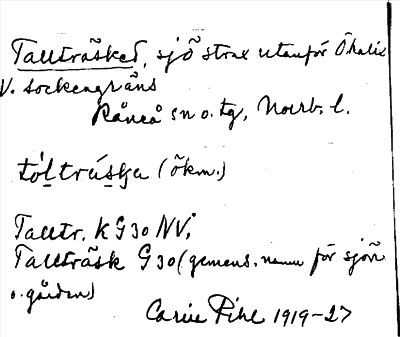 Tallträsket, sjö strax utanför
V. sockengräns
Råneå sn o. tg, Norrb. l.
tól̠trás̠ḳa (ökn.)
Talltr. K G30 NV;
Tallträsk G30 (gemens. namn för sjön
o. gården)
Carin Pihl 1919-27